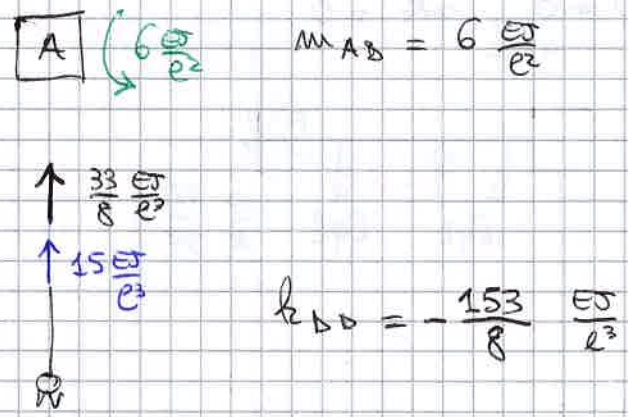 A 6 EJ/l² m_AD = 6 EJ/l²
33/8 EJ/l³
15 EJ/l³
k_DD = - 153/8 EJ/l³